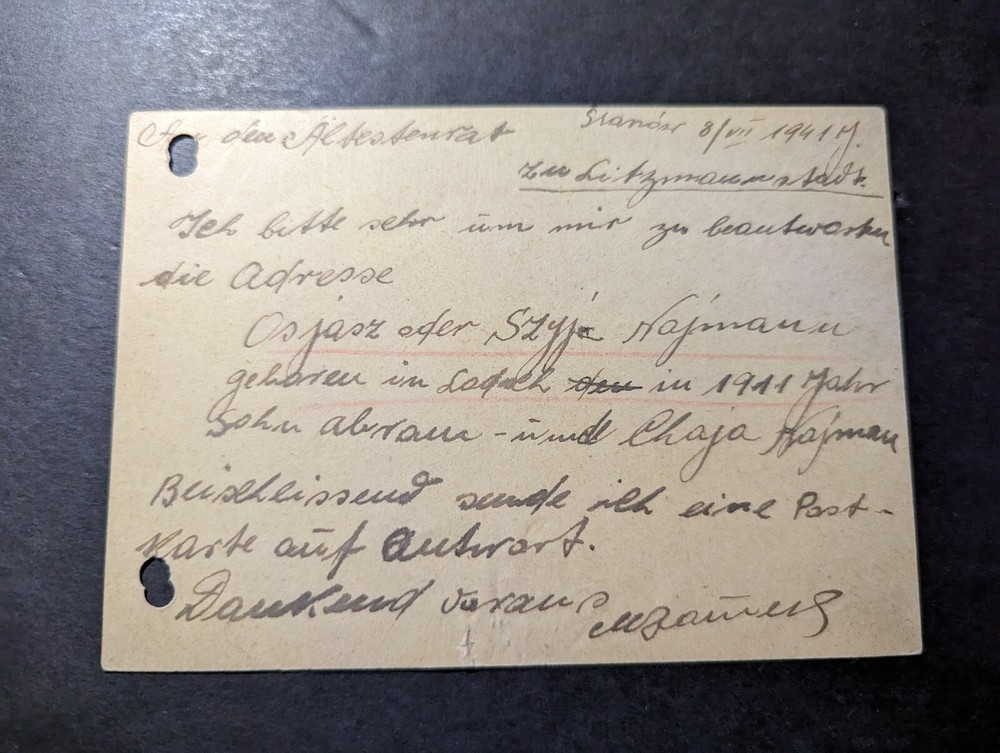 An den Ältestenrat 8/VII 1941 J.
zu Litzmannstadt.
Ich bitte sehr um mir zu beantworten
die Adresse
Osjasz oder Szyja Najmann
geboren in Lodsch den in 1911 Jahr
Sohn abram - und Chaja Najman
Beischlissend sende ich eine Post-
karte auf Antwort.
Dankend voraus